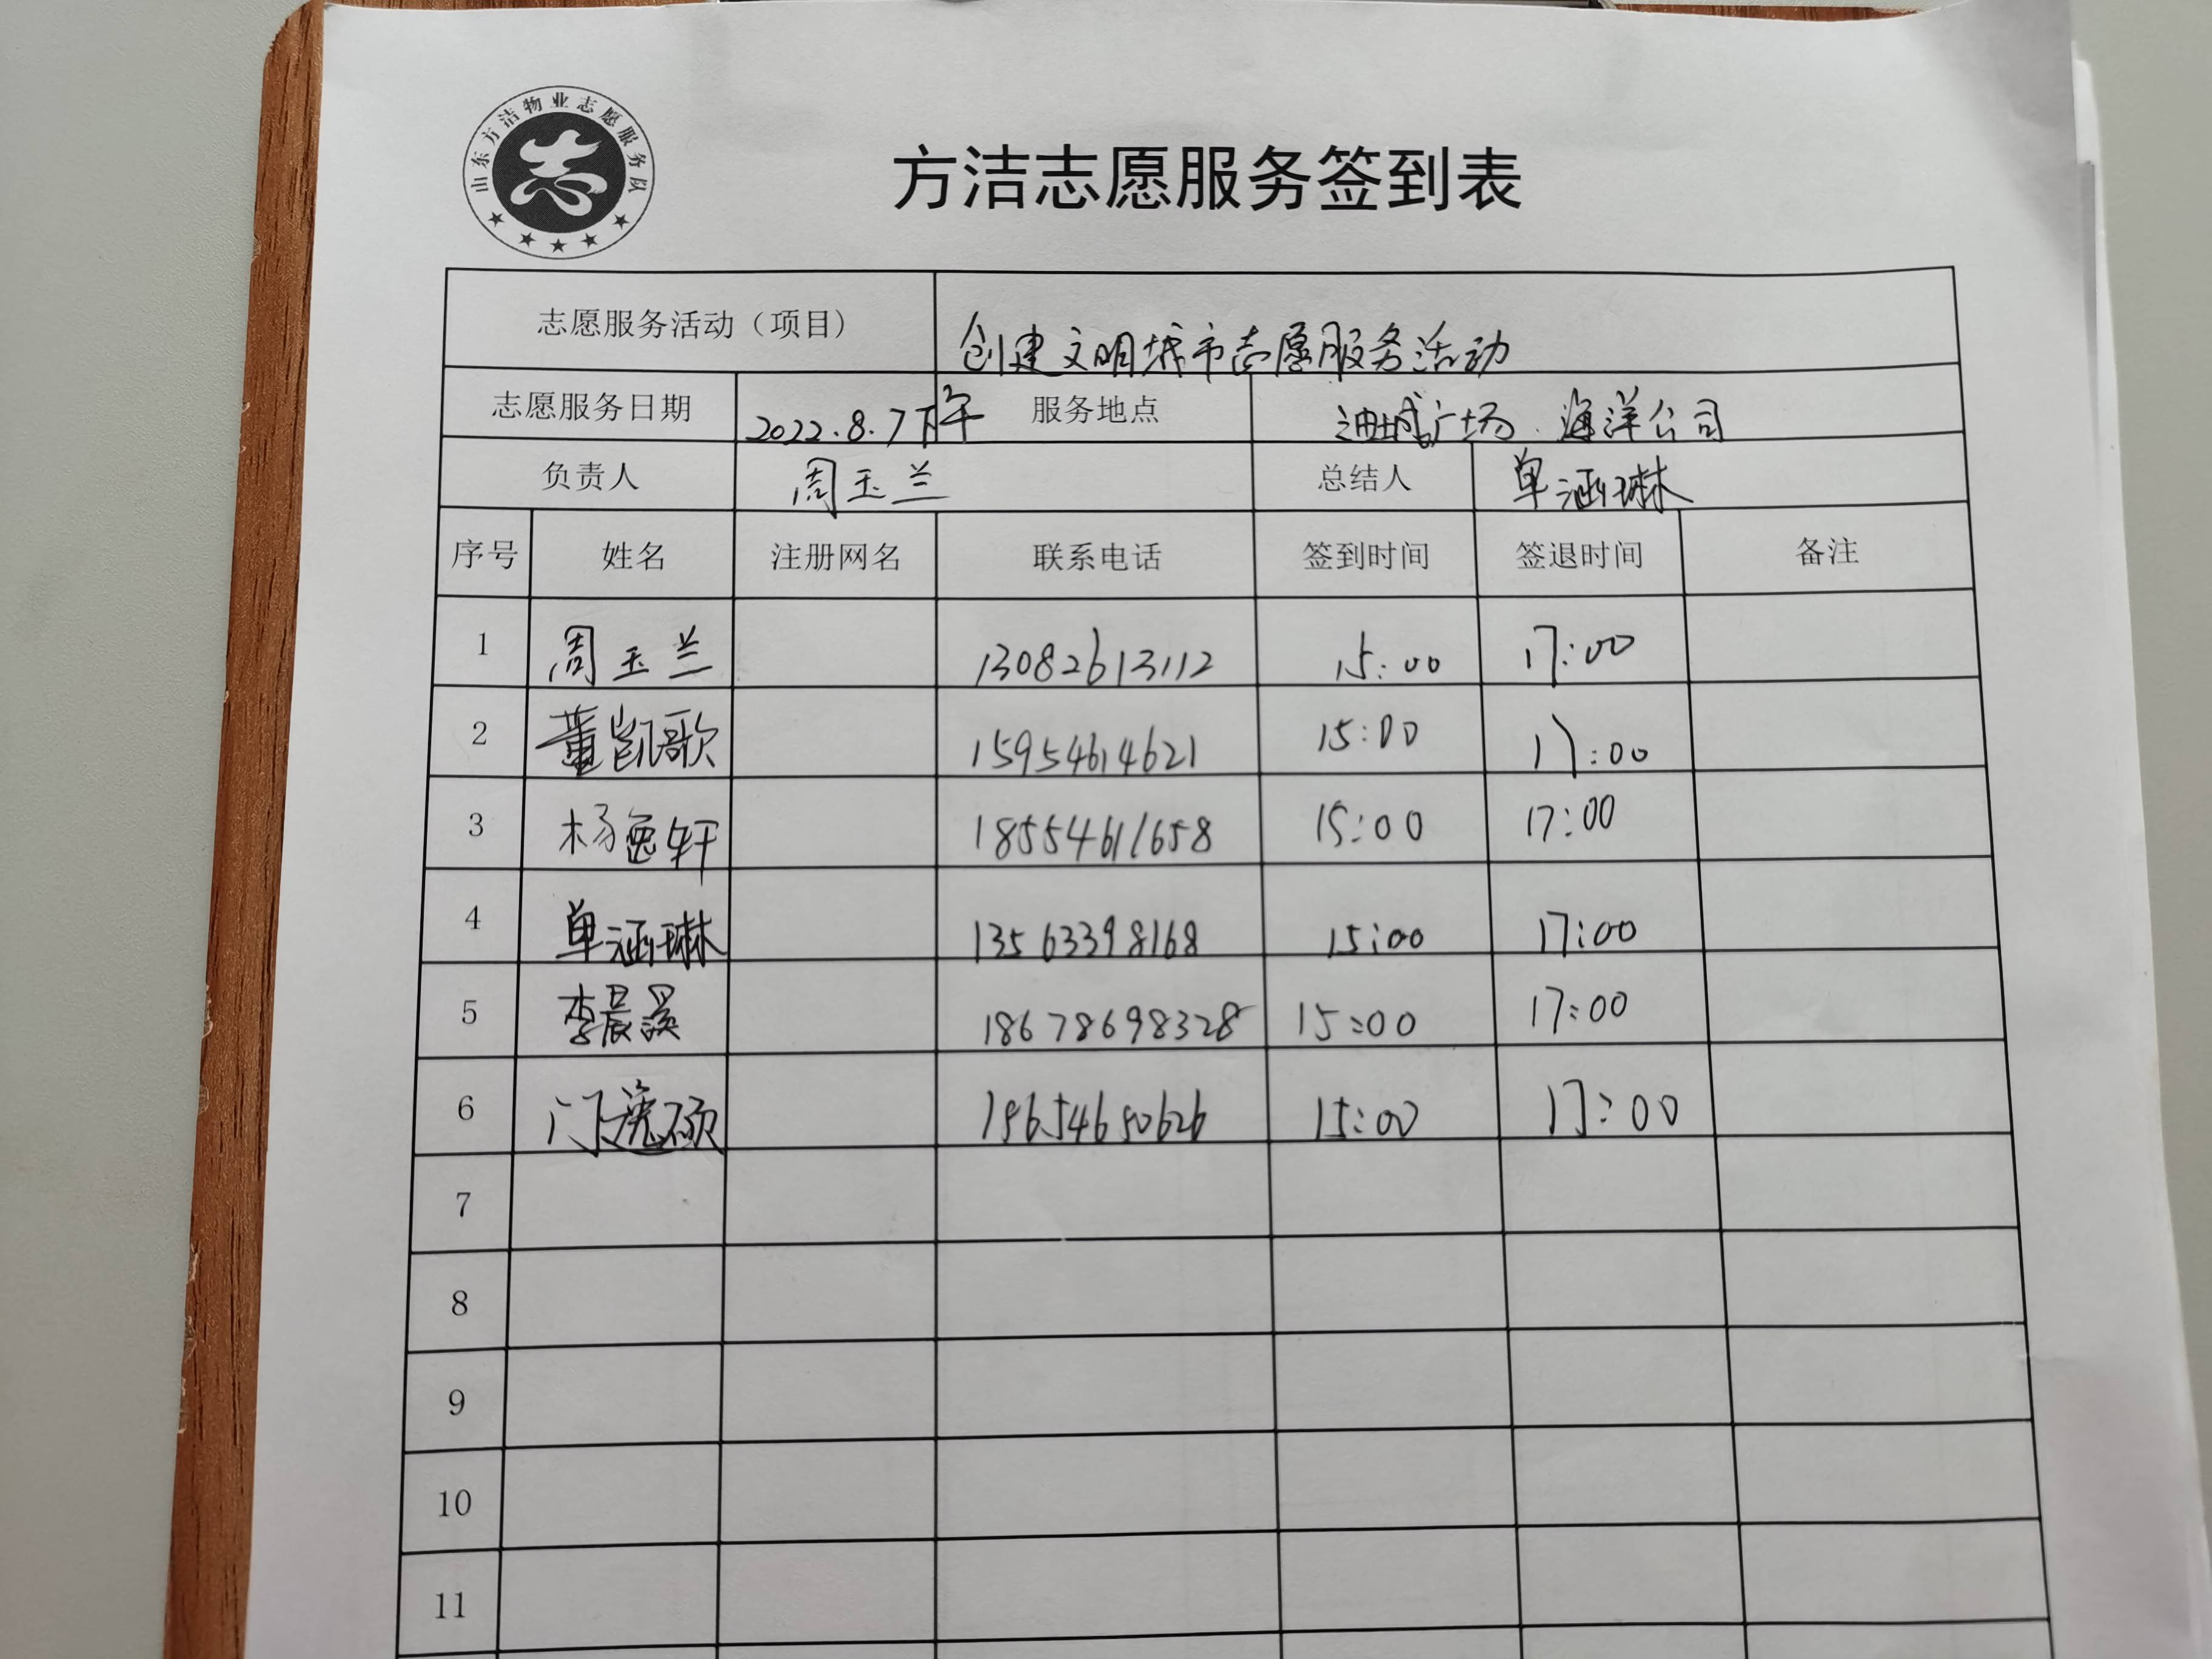 山东方洁物业志愿服务队
方洁志愿服务签到表
志愿服务活动（项目） 创建文明城市志愿服务活动
志愿服务日期 2022.8.7下午 服务地点 广场、海洋公司
负责人 周玉兰 总结人 单涵琳
序号 姓名 注册网名 联系电话 签到时间 签退时间 备注
1 周玉兰 13082613112 15:00 17:00
2 董凯歌 15954614621 15:00 17:00
3 杨逸轩 18554611658 15:00 17:00
4 单涵琳 13563398168 15:00 17:00
5 李晨溪 18678698328 15:00 17:00
6 门 硕 15654650626 15:00 17:00
7
8
9
10
11